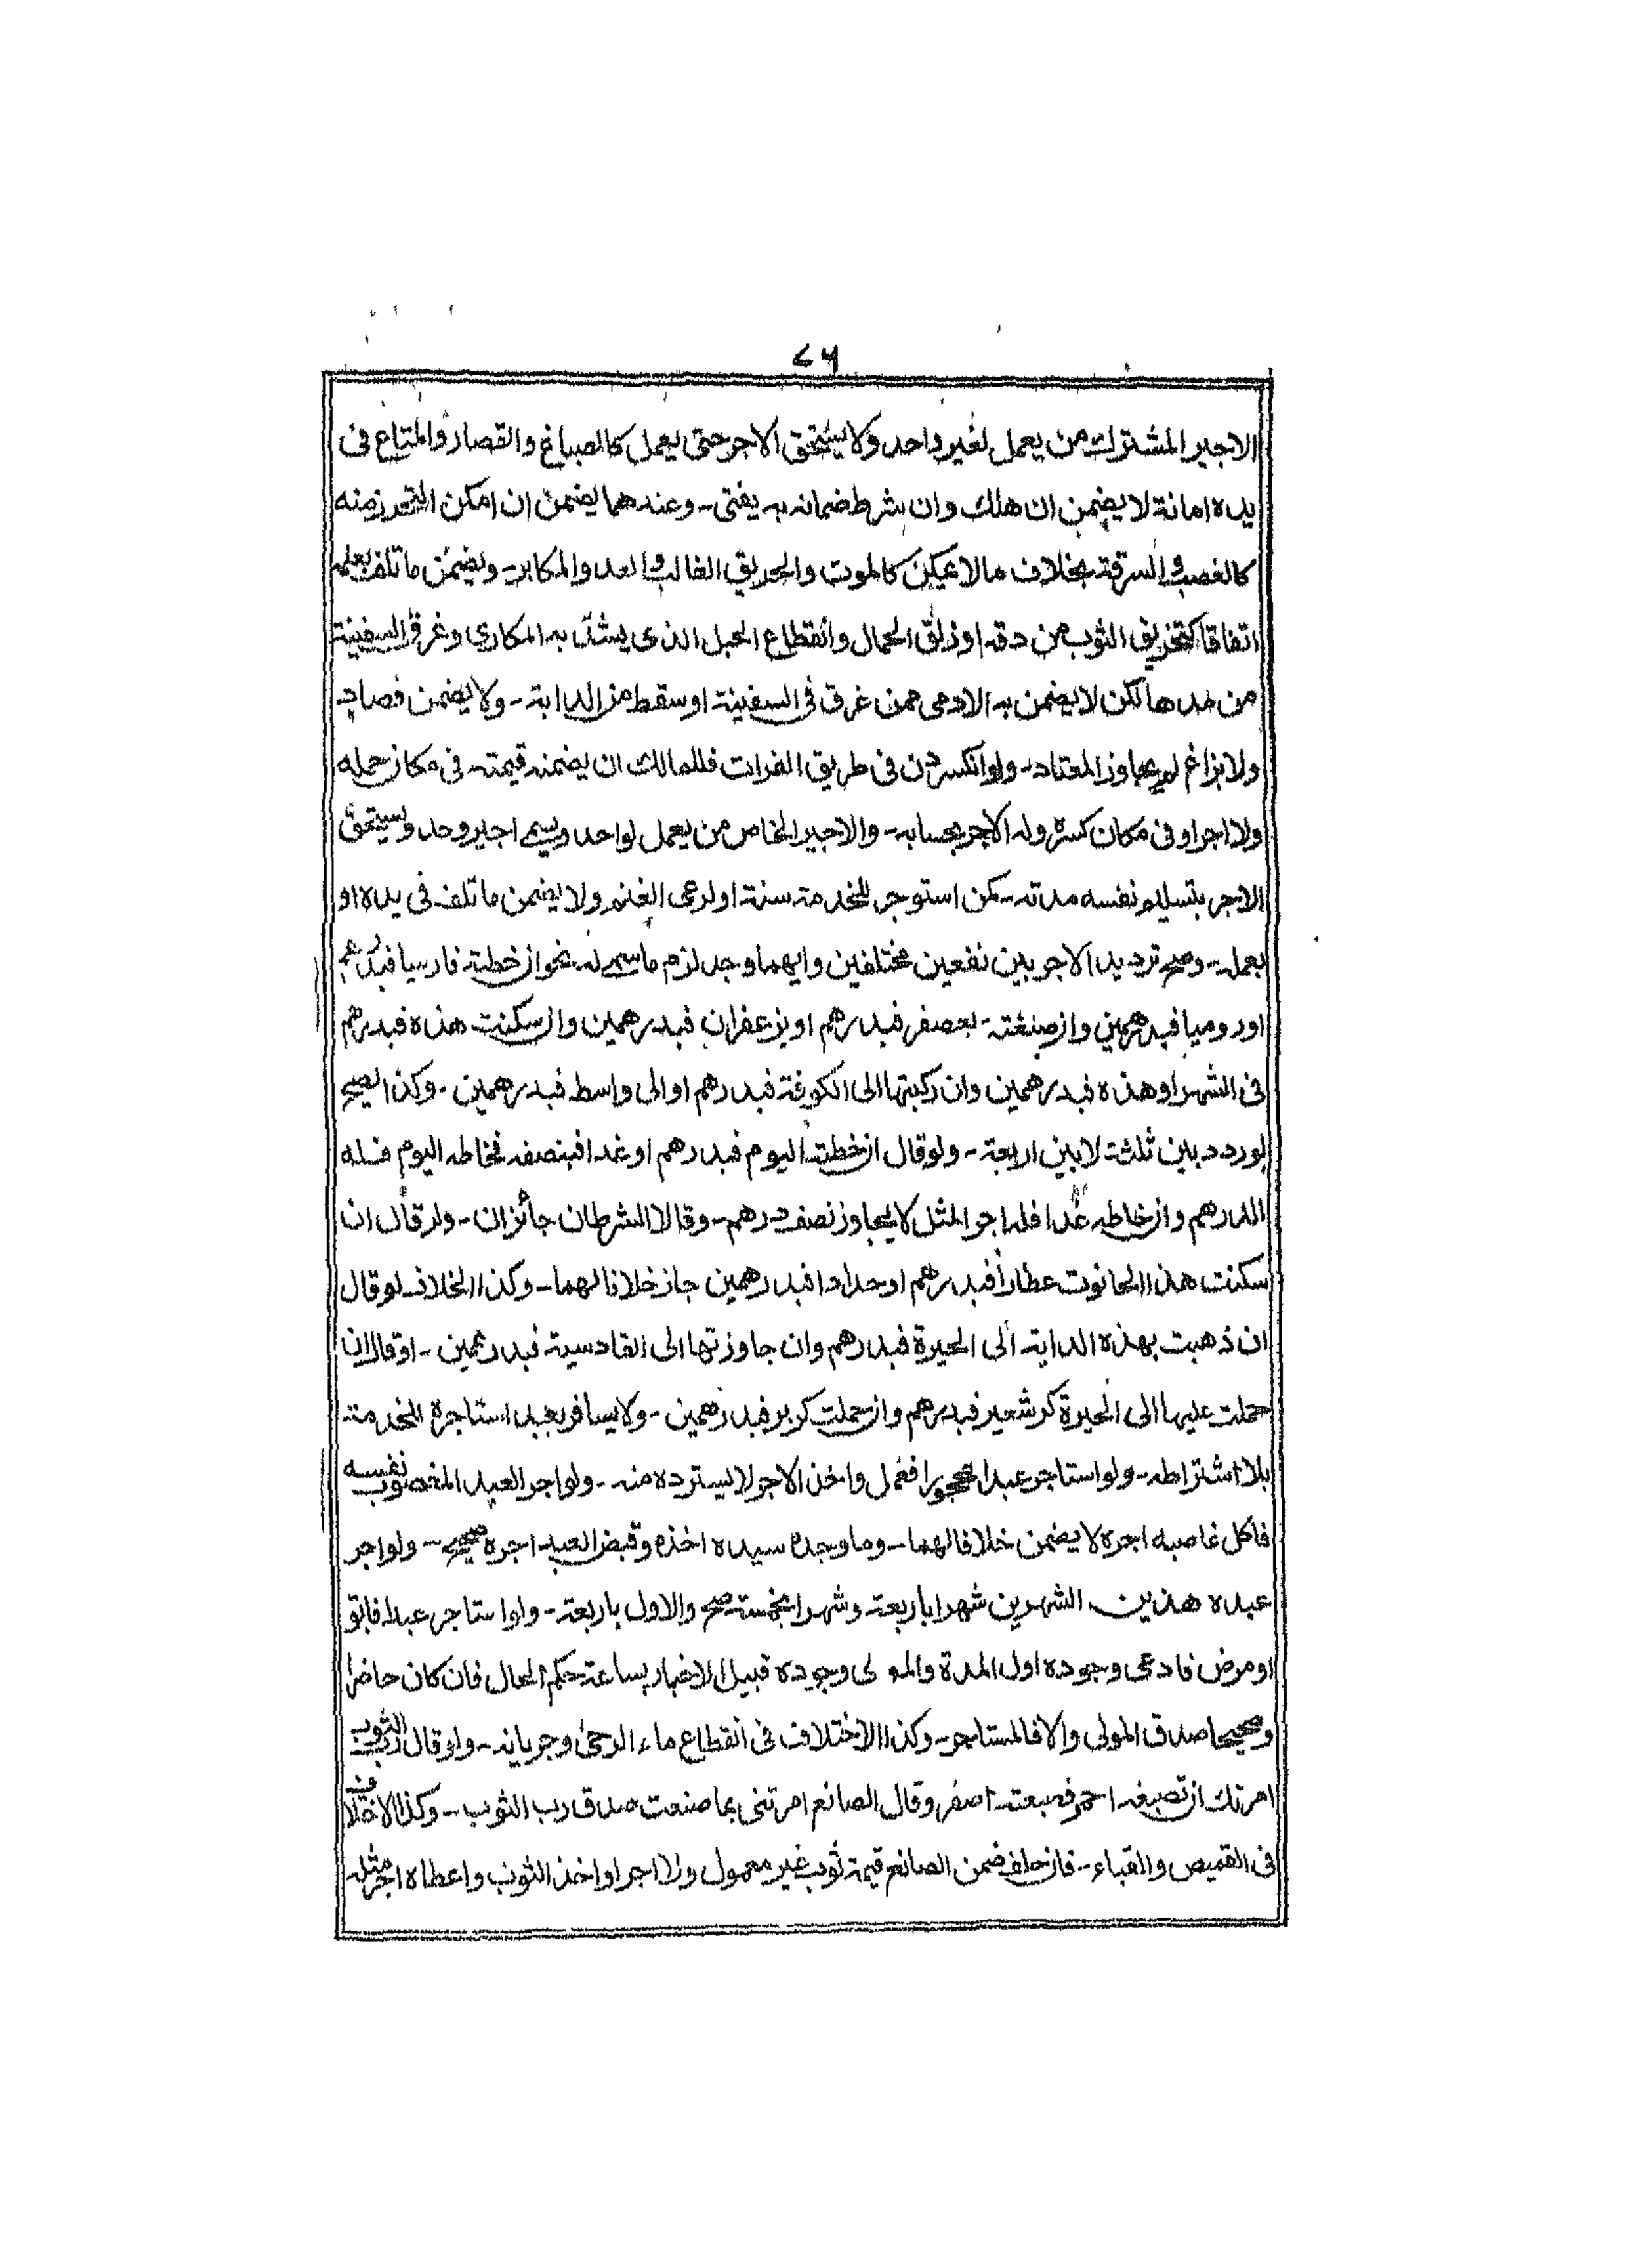 ۷۵
الاجير المشترك من يعمل لغير واحد ولا يستحق الاجر حتى يعمل كالصباغ والقصار والمتاع فى
يده امانة لا يضمن ان هلك وان شرط ضمانه به يفتى - وعندهما يضمن ان امكن التحرز منه
كالغصب والسرقة بخلاف مالا يمكن كالموت والحريق الغالب والعدو المكابر - ويضمن ما تلف بعمله
اتفاقا كتخريق الثوب من دقه او زلق الحمال وانقطاع الحبل الذى يشد به المكارى وغرق السفينة
من مدها لكن لا يضمن به الادمى ممن غرق فى السفينة او سقط من الدابة - ولا يضمن فصاد
ولا بزاغ لم يجاوز المعتاد - ولو انكسر دن فى طريق الفرات فللمالك ان يضمنه قيمته فى مكان حمله
ولا اجر او فى مكان كسره وله الاجر بحسابه - والاجير الخاص من يعمل لواحد ويسمى اجير وحد ويستحق
الاجر بتسليم نفسه مدته - كمن استوجر للخدمة سنة او لرعى الغنم ولا يضمن ما تلف فى يده او
بعمله - وصح ترديد الاجر بين نفعين مختلفين وايهما وجد لزم ما سمى له نحو ان خطته فارسيا فبدرهم
او روميا فبدرهمين وان صبغته بعصفر فبدرهم او بزعفران فبدرهمين وان سكنت هذه فبدرهم
فى الشهر او هذه فبدرهمين وان ركبتها الى الكوفة فبدرهم او الى واسط فبدرهمين - وكذا يصح
لو ردد بين ثلثة لا بين اربعة - ولو قال ان خطته اليوم فبدرهم او غدا فبنصفه فخاطه اليوم فله
الدرهم وان خاطه غدا فله اجر المثل لا يجاوز نصف درهم - وقالا الشرطان جائزان - ولو قال ان
سكنت هذا الحانوت عطارا فبدرهم او حدادا فبدرهمين جاز خلافا لهما - وكذا الخلاف لو قال
ان ذهبت بهذه الدابة الى الحيرة فبدرهم وان جاوزتها الى القادسية فبدرهمين - او قال ان
حملت عليها الى الحيرة كر شعير فبدرهم وان حملت كر بر فبدرهمين - ولا يسافر بعبد استاجره للخدمة
بلا اشتراطه - ولو استاجر عبدا محجورا فعمل واخذ الاجر لا يسترده منه - ولو اجر العبد المغصوب نفسه
فاكل غاصبه اجره لا يضمن خلافا لهما - وما وجده سيده اخذه وقبض العبد اجره صحيح - ولو اجر
عبده هذين الشهرين شهرا باربعة وشهرا بخمسة صح والاول باربعة - ولو استاجر عبدا فابق
او مرض فادعى وجوده اول المدة والمولى وجوده قبيل الاخبار بساعة حكم الحال فان كان حاضرا
وصحيحا صدق المولى والا فالمستاجر - وكذا الاختلاف فى انقطاع ماء الرحى وجريانه - ولو قال رب الثوب
امرتك ان تصبغه احمر فصبغته اصفر وقال الصانع امرتنى بما صنعت صدق رب الثوب - وكذا الاختلاف
فى القميص والقباء - فان حلف ضمن الصانع قيمة ثوب غير معمول ولا اجر او اخذ الثوب واعطاه اجر مثله